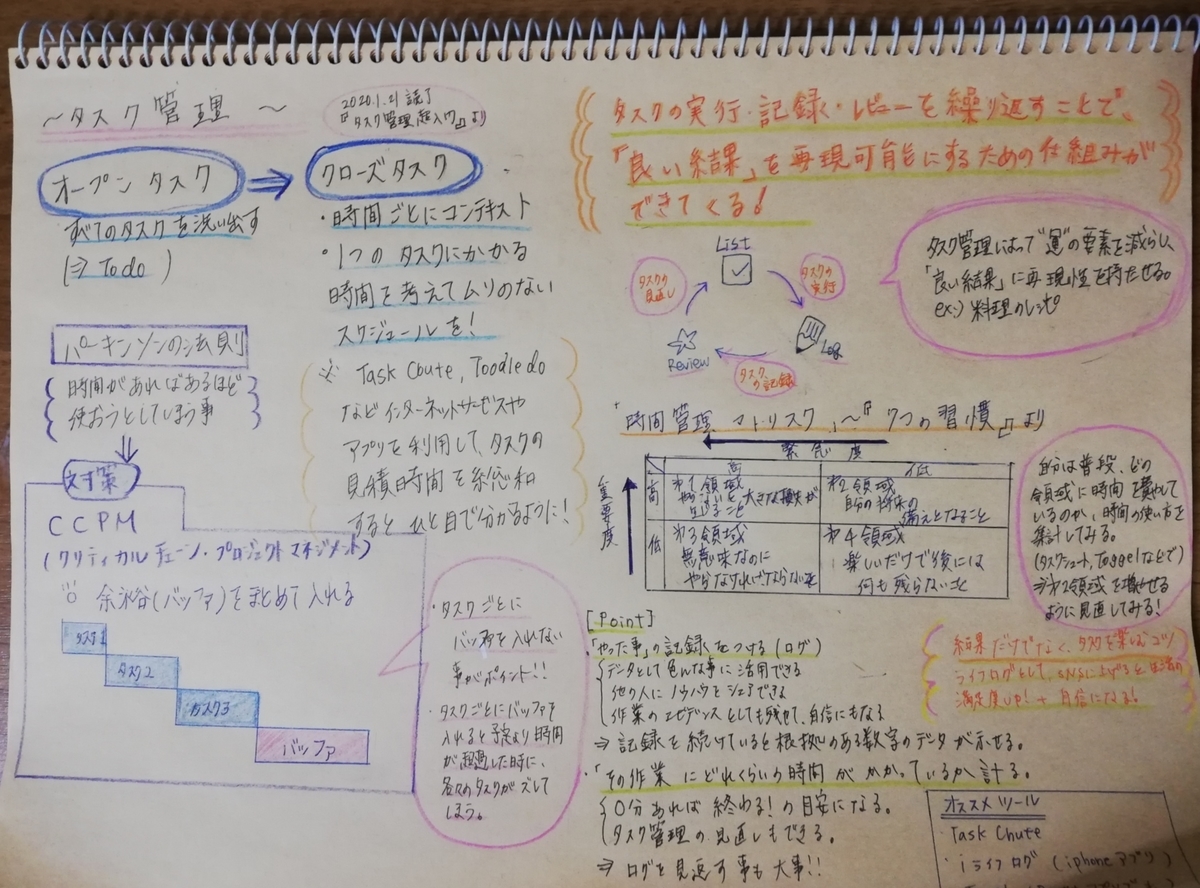 ～タスク管理～
2020.1.21 読了
『タスク管理超入門』より
オープンタスク
すべてのタスクを洗い出す
(⇒ Todo )
クローズタスク
・時間ごとにコンテキスト
・1つのタスクにかかる
時間を考えてムリのない
スケジュールを!
※ Task Chute, Toodledo
などインターネットサービスや
アプリを利用して、タスクの
見積時間を総和
すると ひと目で分かるように!
パーキンソンの法則
時間があればあるほど
使おうとしてしまう事
対策
CCPM
(クリティカルチェーン・プロジェクトマネジメント)
余裕(バッファ)をまとめて入れる
タスク1
タスク2
タスク3
バッファ
・タスクごとに
バッファを入れない
事がポイント!!
・タスクごとにバッファを
入れると予定より時間
が超過した時に、
各々のタスクがズレて
しまう。
タスクの実行・記録・レビューを繰り返すことで、
「良い結果」を再現可能にするための仕組みが
できてくる!
List
タスクの
実行
Log
タスクの記録
Review
タスクの
見直し
タスク管理によって"運"の要素を減らし、
「良い結果」に再現性を持たせる。
ex:) 料理のレシピ
「時間管理マトリスク」～『7つの習慣』より
緊急度
高
低
重要度
高
第1領域
やらないと大きな損失が
生じること
第2領域
自分の将来の
備えとなること
低
第3領域
無意味なのに
やらなければならない事
第4領域
楽しいだけで後には
何も残らないこと
自分は普段、どの
領域に時間を費やして
いるのか、時間の使い方を
集計してみる。
(タスクシュート, Toggelなどで)
⇒第2領域を増やせる
ように見直してみる!
[Point]
・「やった事」の記録をつける(ログ)
データとして色んな事に活用できる
他の人にノウハウをシェアできる
作業のエビデンスとしても残せて、自信にもなる
⇒ 記録を続けていると根拠のある数字のデータが示せる。
・「その作業にどれくらいの時間がかかっているか計る。
○分あれば終わる!の目安になる。
タスク管理の見直しもできる。
⇒ ログを見返す事も大事!!
結果だけでなく、タスクを楽しむコツ
ライフログとして、SNSに上げると生活の
満足度UP! + 自信になる!
オススメツール
・Task Chute
・iライフログ (iphoneアプリ)